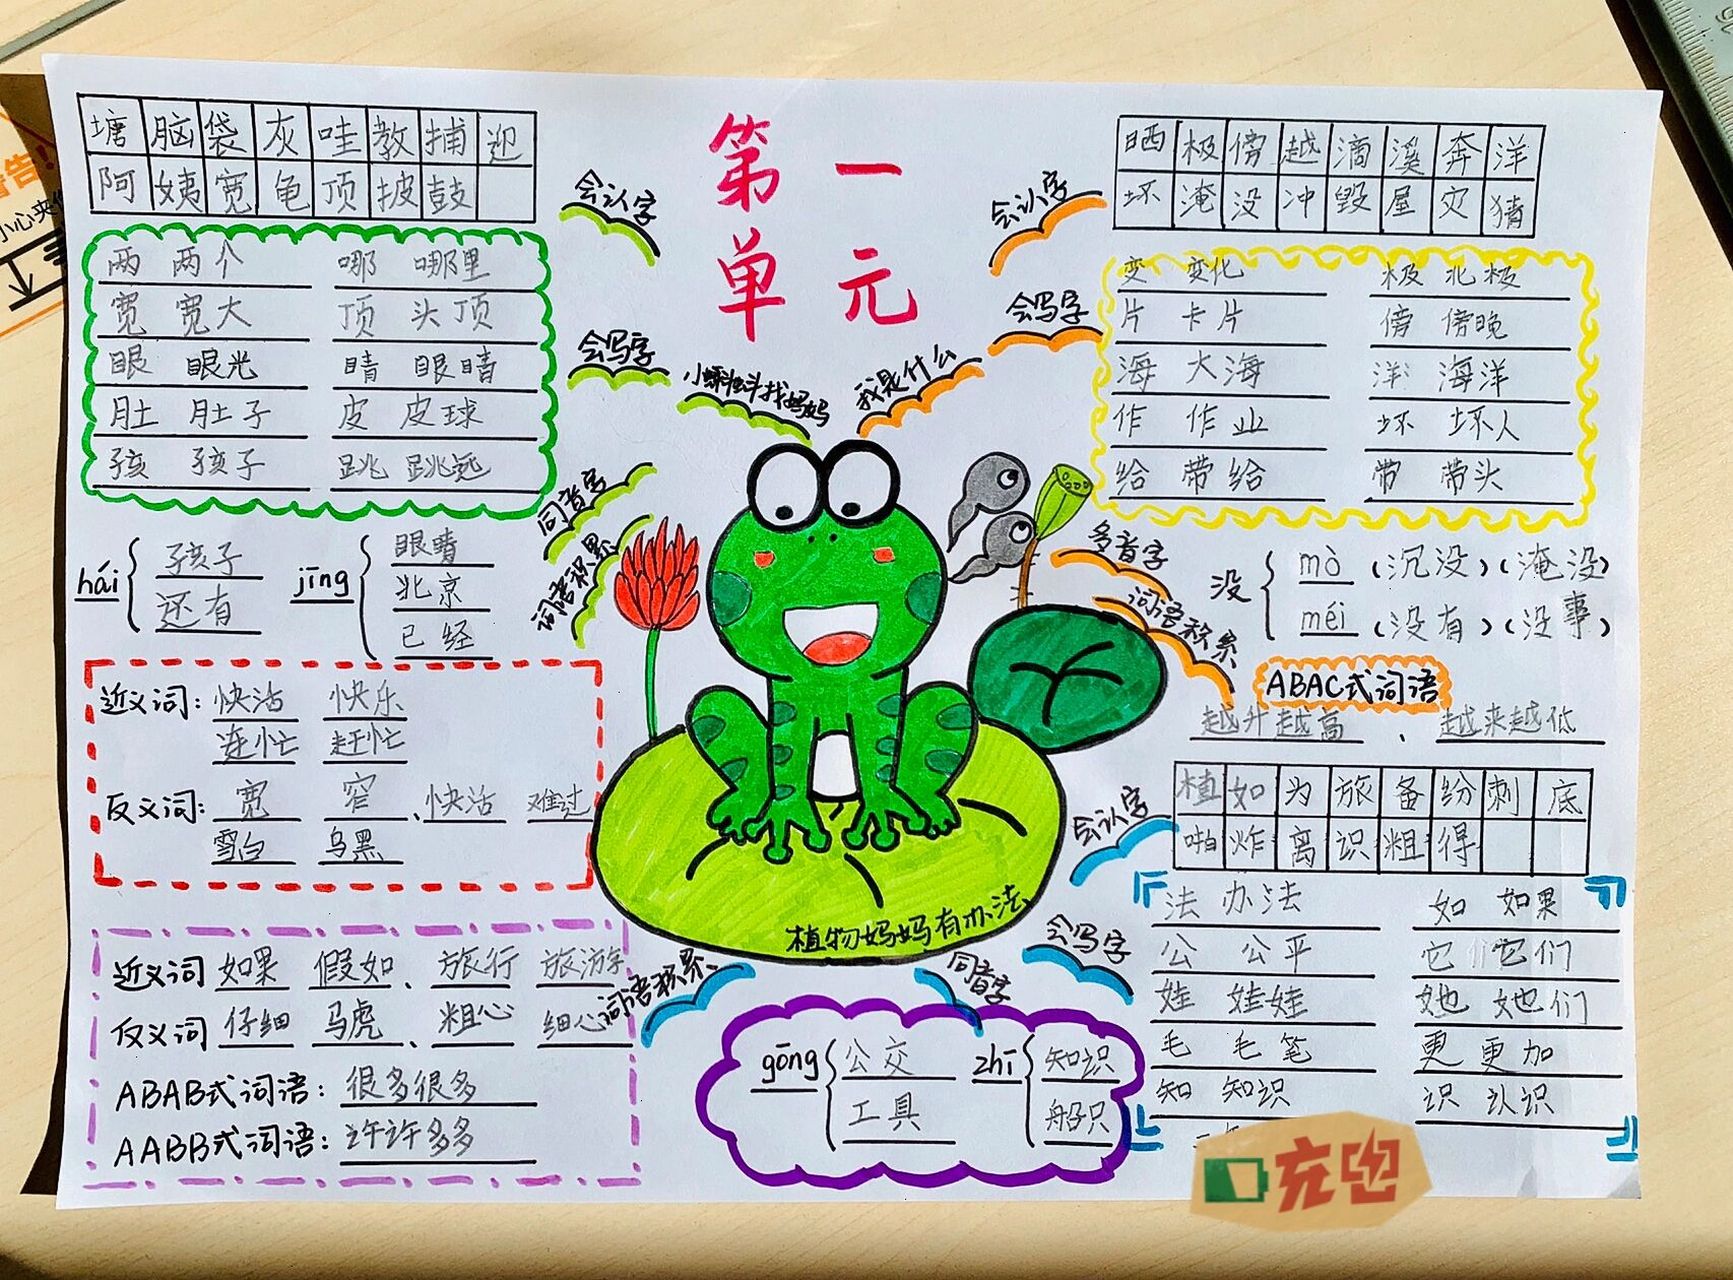 第一
单元
塘 脑 袋 灰 哇 教 捕 迎
阿 姨 宽 龟 顶 披 鼓
会认字
两 两个 哪 哪里
宽 宽大 顶 头顶
眼 眼光 睛 眼睛
肚 肚子 皮 皮球
孩 孩子 跳 跳远
会写字
小蝌蚪找妈妈
同音字
词语积累
hái
孩子
还有
jīng
眼睛
北京
已经
近义词: 快活 快乐
连忙 赶忙
反义词: 宽 窄、快活 难过
雪白 乌黑
会认字
晒 极 傍 越 滴 溪 奔 洋
坏 淹 没 冲 毁 屋 灾 猜
会写字
我是什么
变 变化 极 北极
片 卡片 傍 傍晚
海 大海 洋 海洋
作 作业 坏 坏人
给 带给 带 带头
多音字
词语积累
没
mò (沉没)(淹没)
méi (没有)(没事)
ABAC式词语
越升越高、越来越低
会认字
植 如 为 旅 备 纷 刺 底
啪 炸 离 识 粗 得
植物妈妈有办法
会写字
法 办法 如 如果
公 公平 它 它们
娃 娃娃 她 她们
毛 毛笔 更 更加
知 知识 识 认识
同音字
gōng
公交
工具
zhī
知识
船只
词语积累
近义词 如果 假如、旅行 旅游
反义词 仔细 马虎、粗心 细心
ABAB式词语: 很多很多
AABB式词语: 许许多多
充电
告!
小心夹